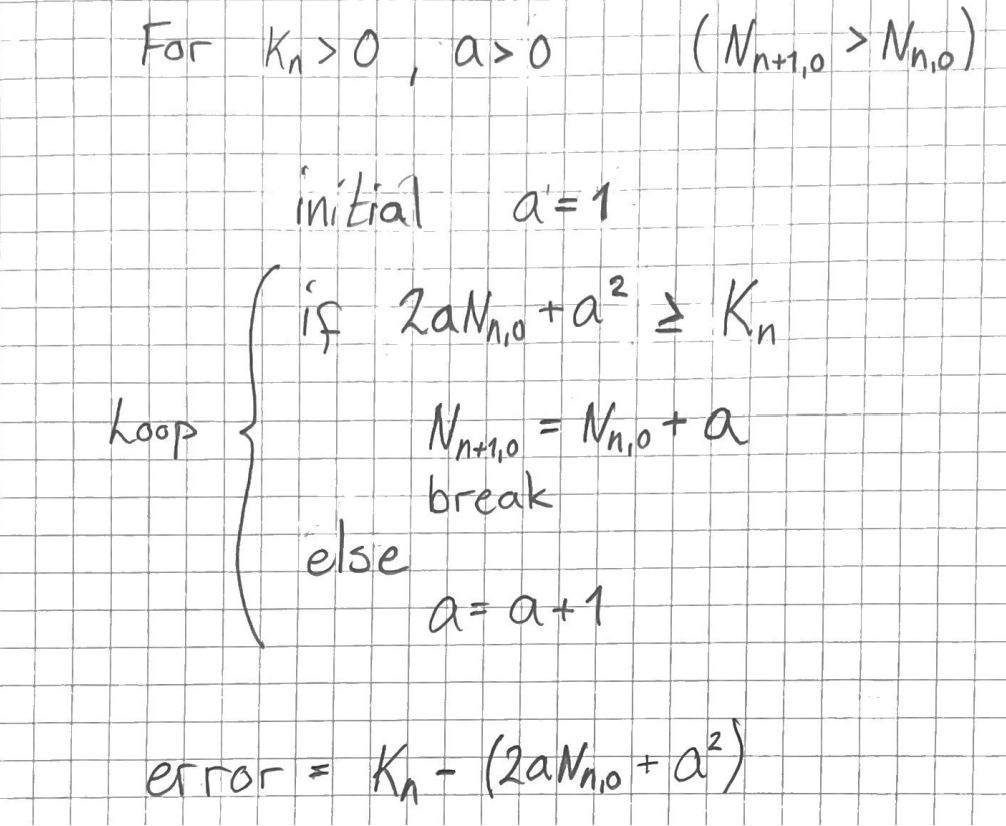 For Kₙ > 0 , a > 0 (Nₙ₊₁,₀ > Nₙ,₀)
initial a = 1
if 2aNₙ,₀ + a² ≥ Kₙ
Nₙ₊₁,₀ = Nₙ,₀ + a
Loop
break
else
a = a + 1
error = Kₙ - (2aNₙ,₀ + a²)